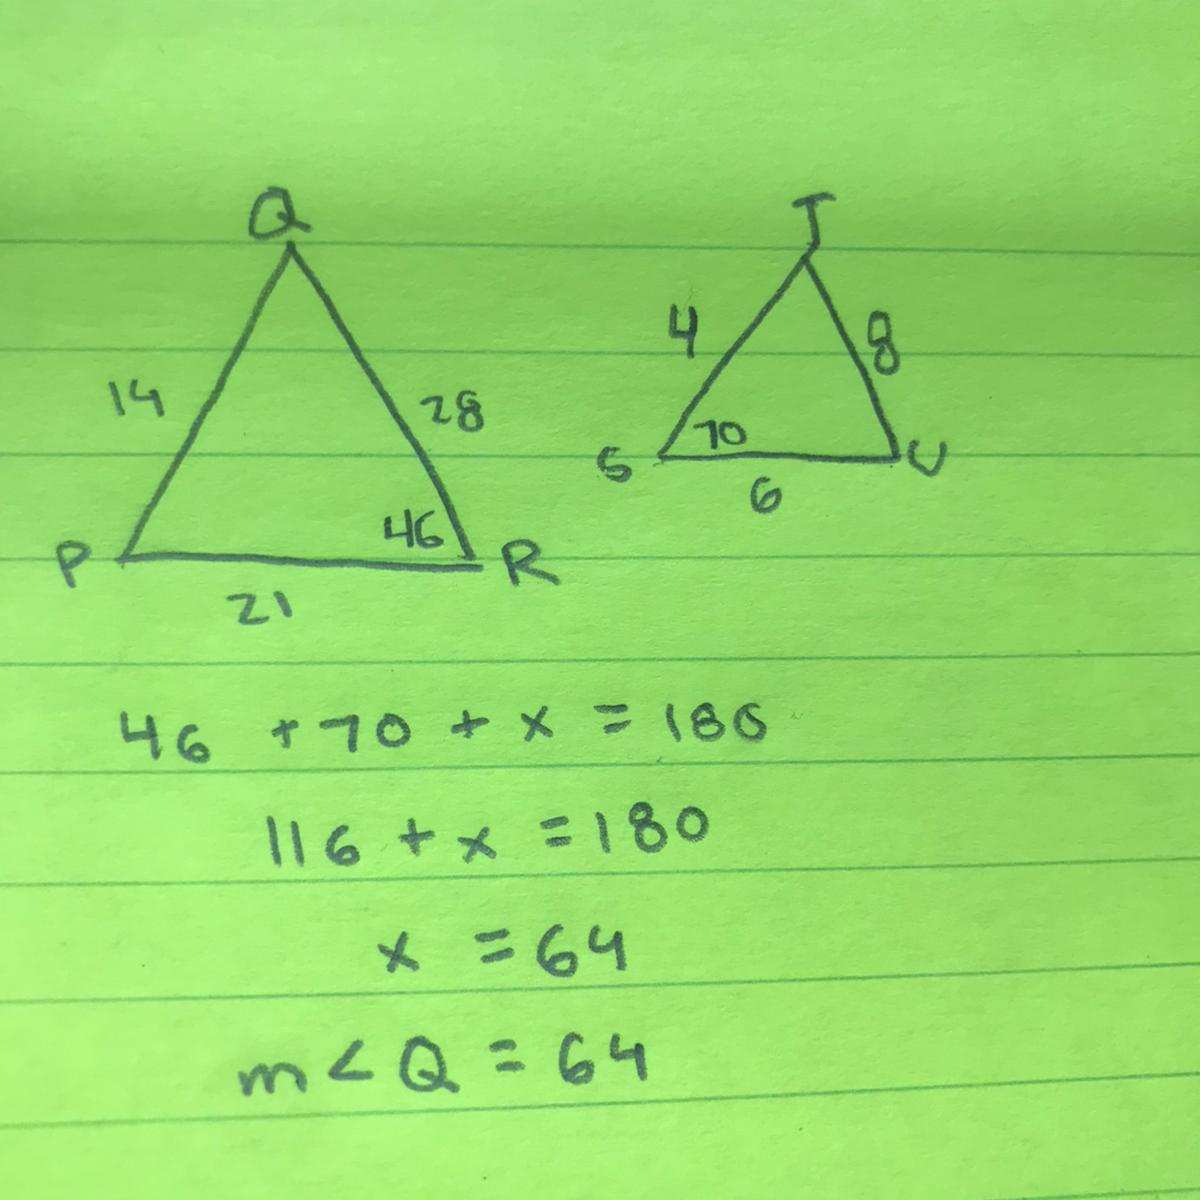 Q
T
4
8
14
28
70
S
U
46
6
P
R
21
46 + 70 + x = 180
116 + x = 180
x = 64
m < Q = 64